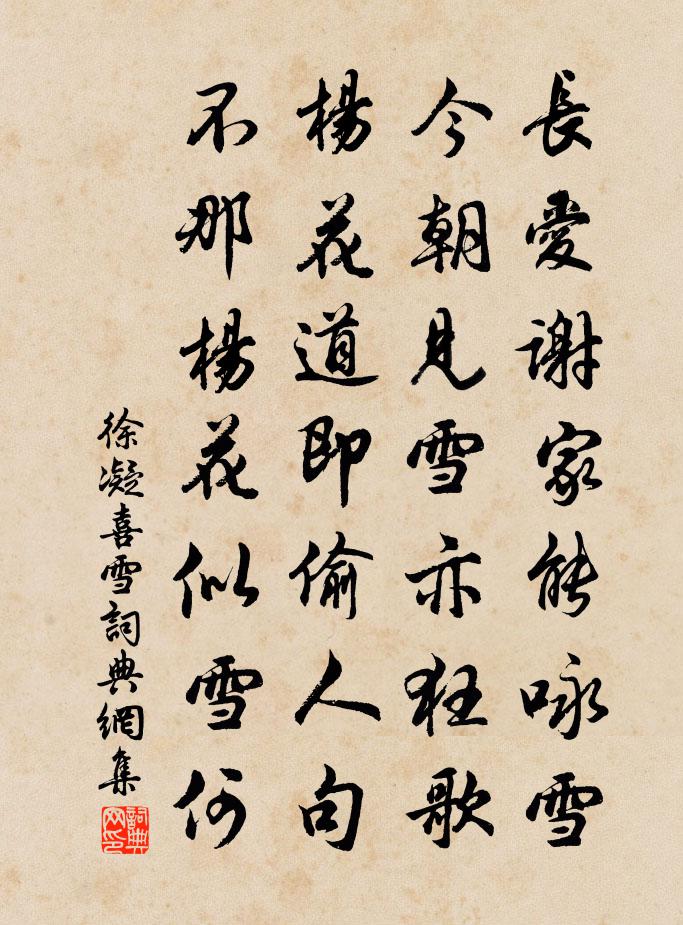 長愛謝家能咏雪
今朝見雪亦狂歌
楊花道即偷人句
不那楊花似雪何
徐凝喜雪詞典網集
詞典网印